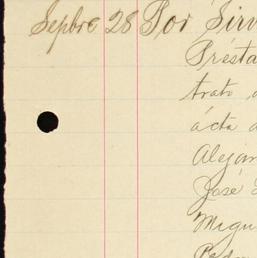 Sepbre 28 Por Sirv
Présta
trato
ácta
Alejan
José
Migu
Pedro